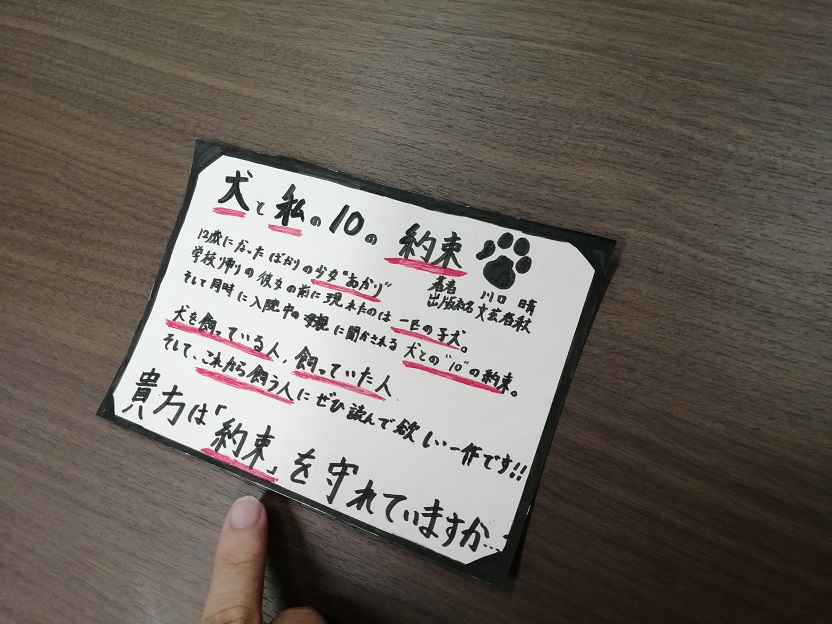 犬と私の10の約束
著者 川口 晴
出版社名 文芸春秋
12歳になったばかりの少女"あかり"
学校帰りの彼女の前に現れたのは一匹の子犬。
そして同時に入院中の母親に聞かされる犬との"10"の約束。
犬を飼っている人、飼っていた人
そして、これから飼う人にぜひ読んで欲しい一作です!!
貴方は「約束」を守れていますか…?